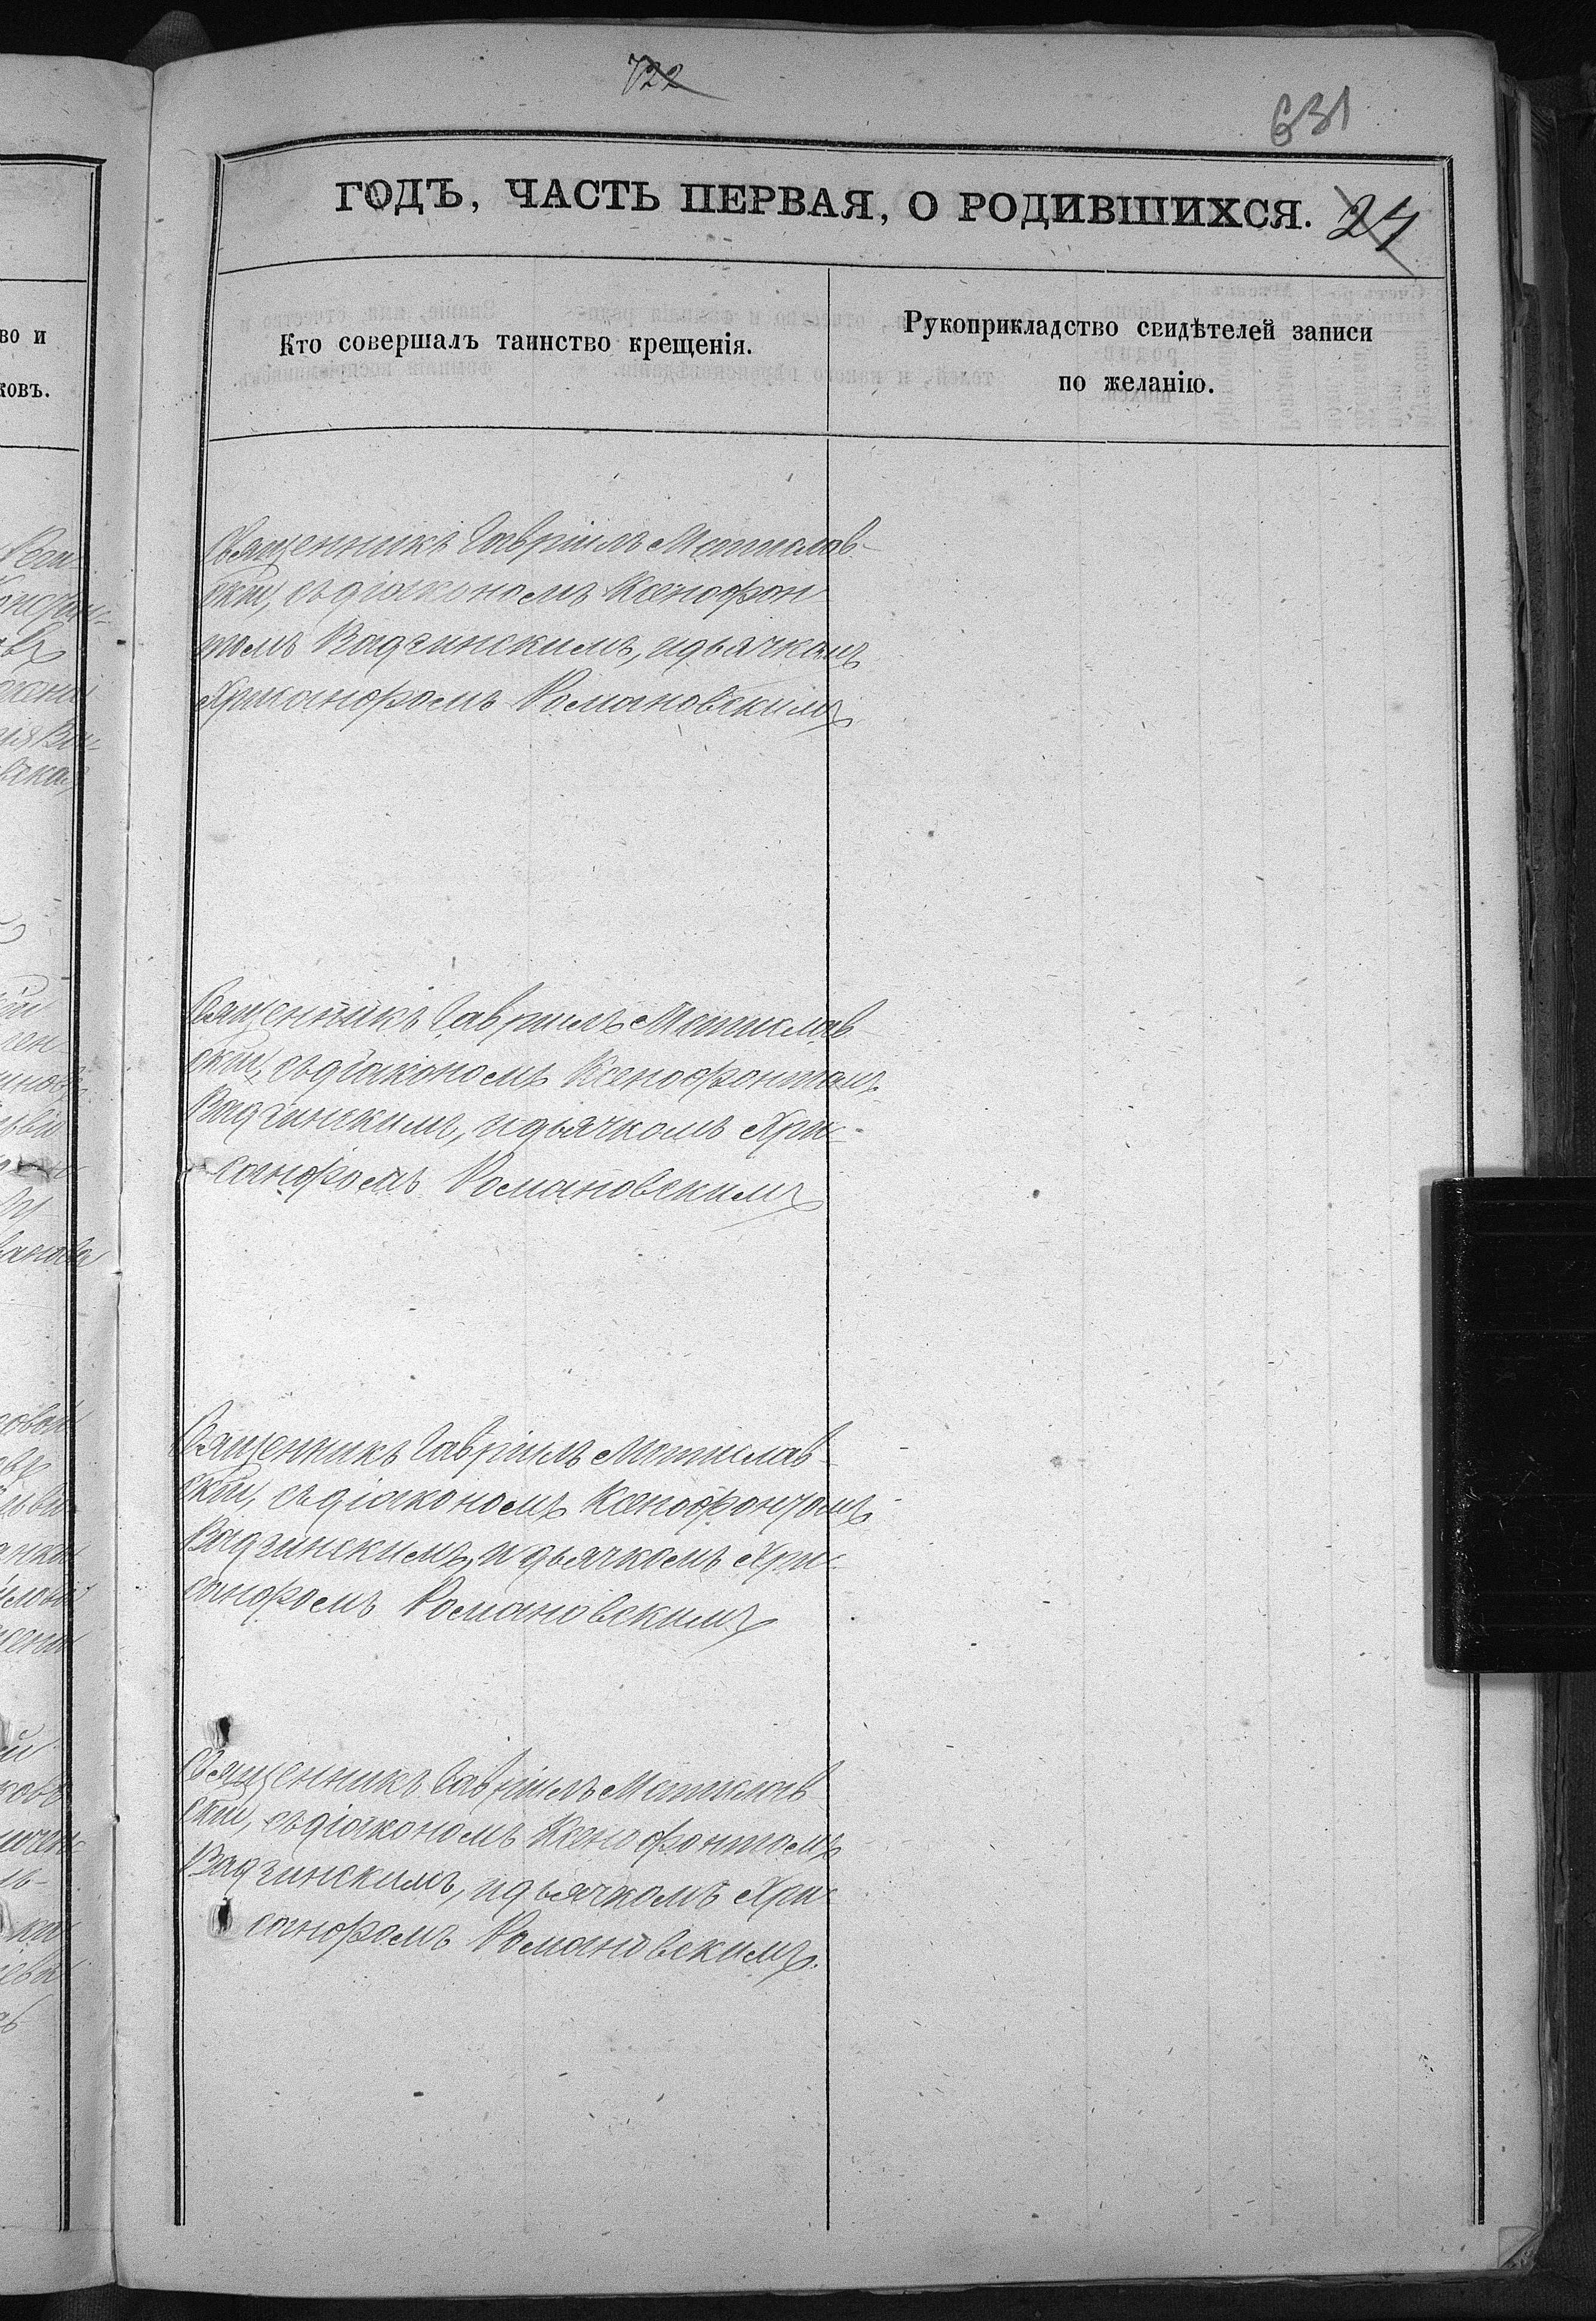 722
631
ГОДЪ, ЧАСТЬ ПЕРВАЯ, О РОДИВШИХСЯ. 24
во и
ковъ.
Кто совершалъ таинство крещенія.
Рукоприкладство свидѣтелей записи
по желанію.
Священникъ Гавріилъ Мстислав-
скій, съ діакономъ Ксенофон-
томъ Вадзинскимъ, и дьячкомъ
Хрисанфомъ Романовскимъ
Священникъ Гавріилъ Мстислав-
скій, съ діакономъ Ксенофонтомъ
Вадзинскимъ, и дьячкомъ Хри-
санфомъ Романовскимъ
Священникъ Гавріилъ Мстислав-
скій, съ діакономъ Ксенофонтомъ
Вадзинскимъ, и дьячкомъ Хри-
санфомъ Романовскимъ
Священникъ Гавріилъ Мстислав-
скій, съ діакономъ Ксенофонтомъ
Вадзинскимъ, и дьячкомъ Хри-
санфомъ Романовскимъ.